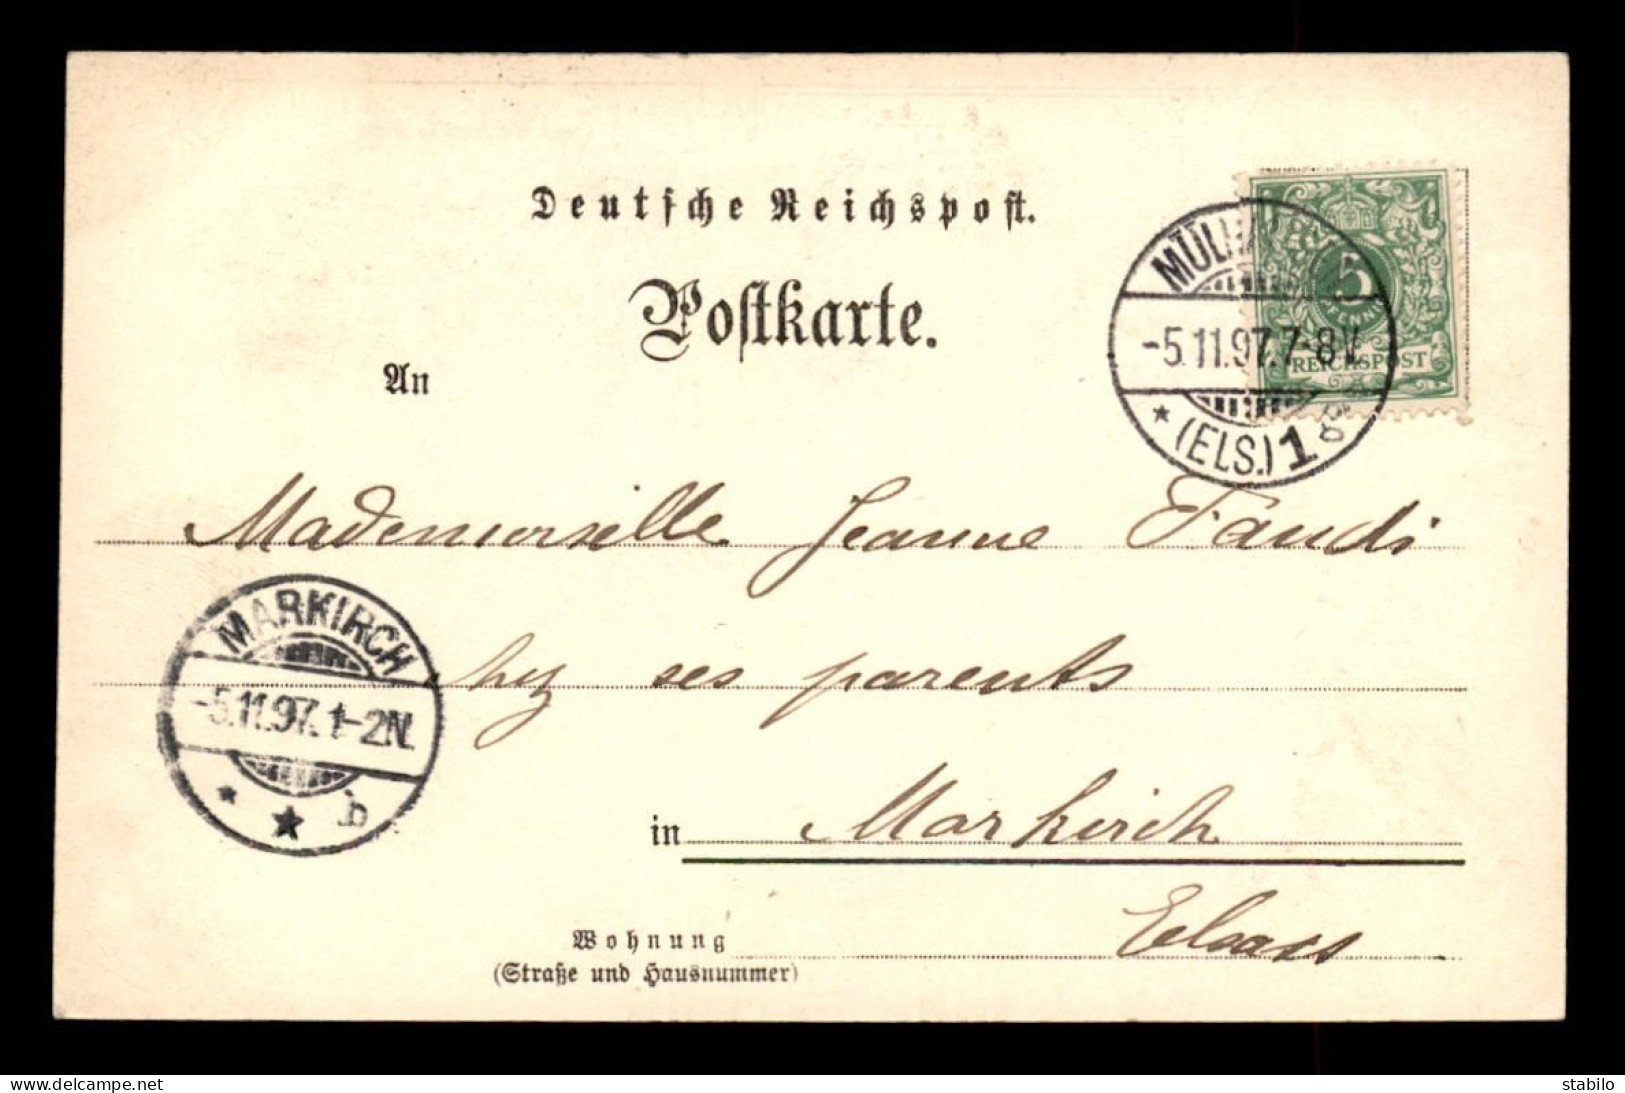 Deutsche Reichspost.
Postkarte.
An
5
PFENNIG
REICHSPOST
MÜLHAUSEN
-5.11.97.7-8V.
* (ELS.) 1 g
Mademoiselle Jeanne Faudi
MARKIRCH
-5.11.97.1-2N.
* * b
chez ses parents
in Markirch
Elsass
Wohnung
(Straße und Hausnummer)
delcampe.net
stabilo